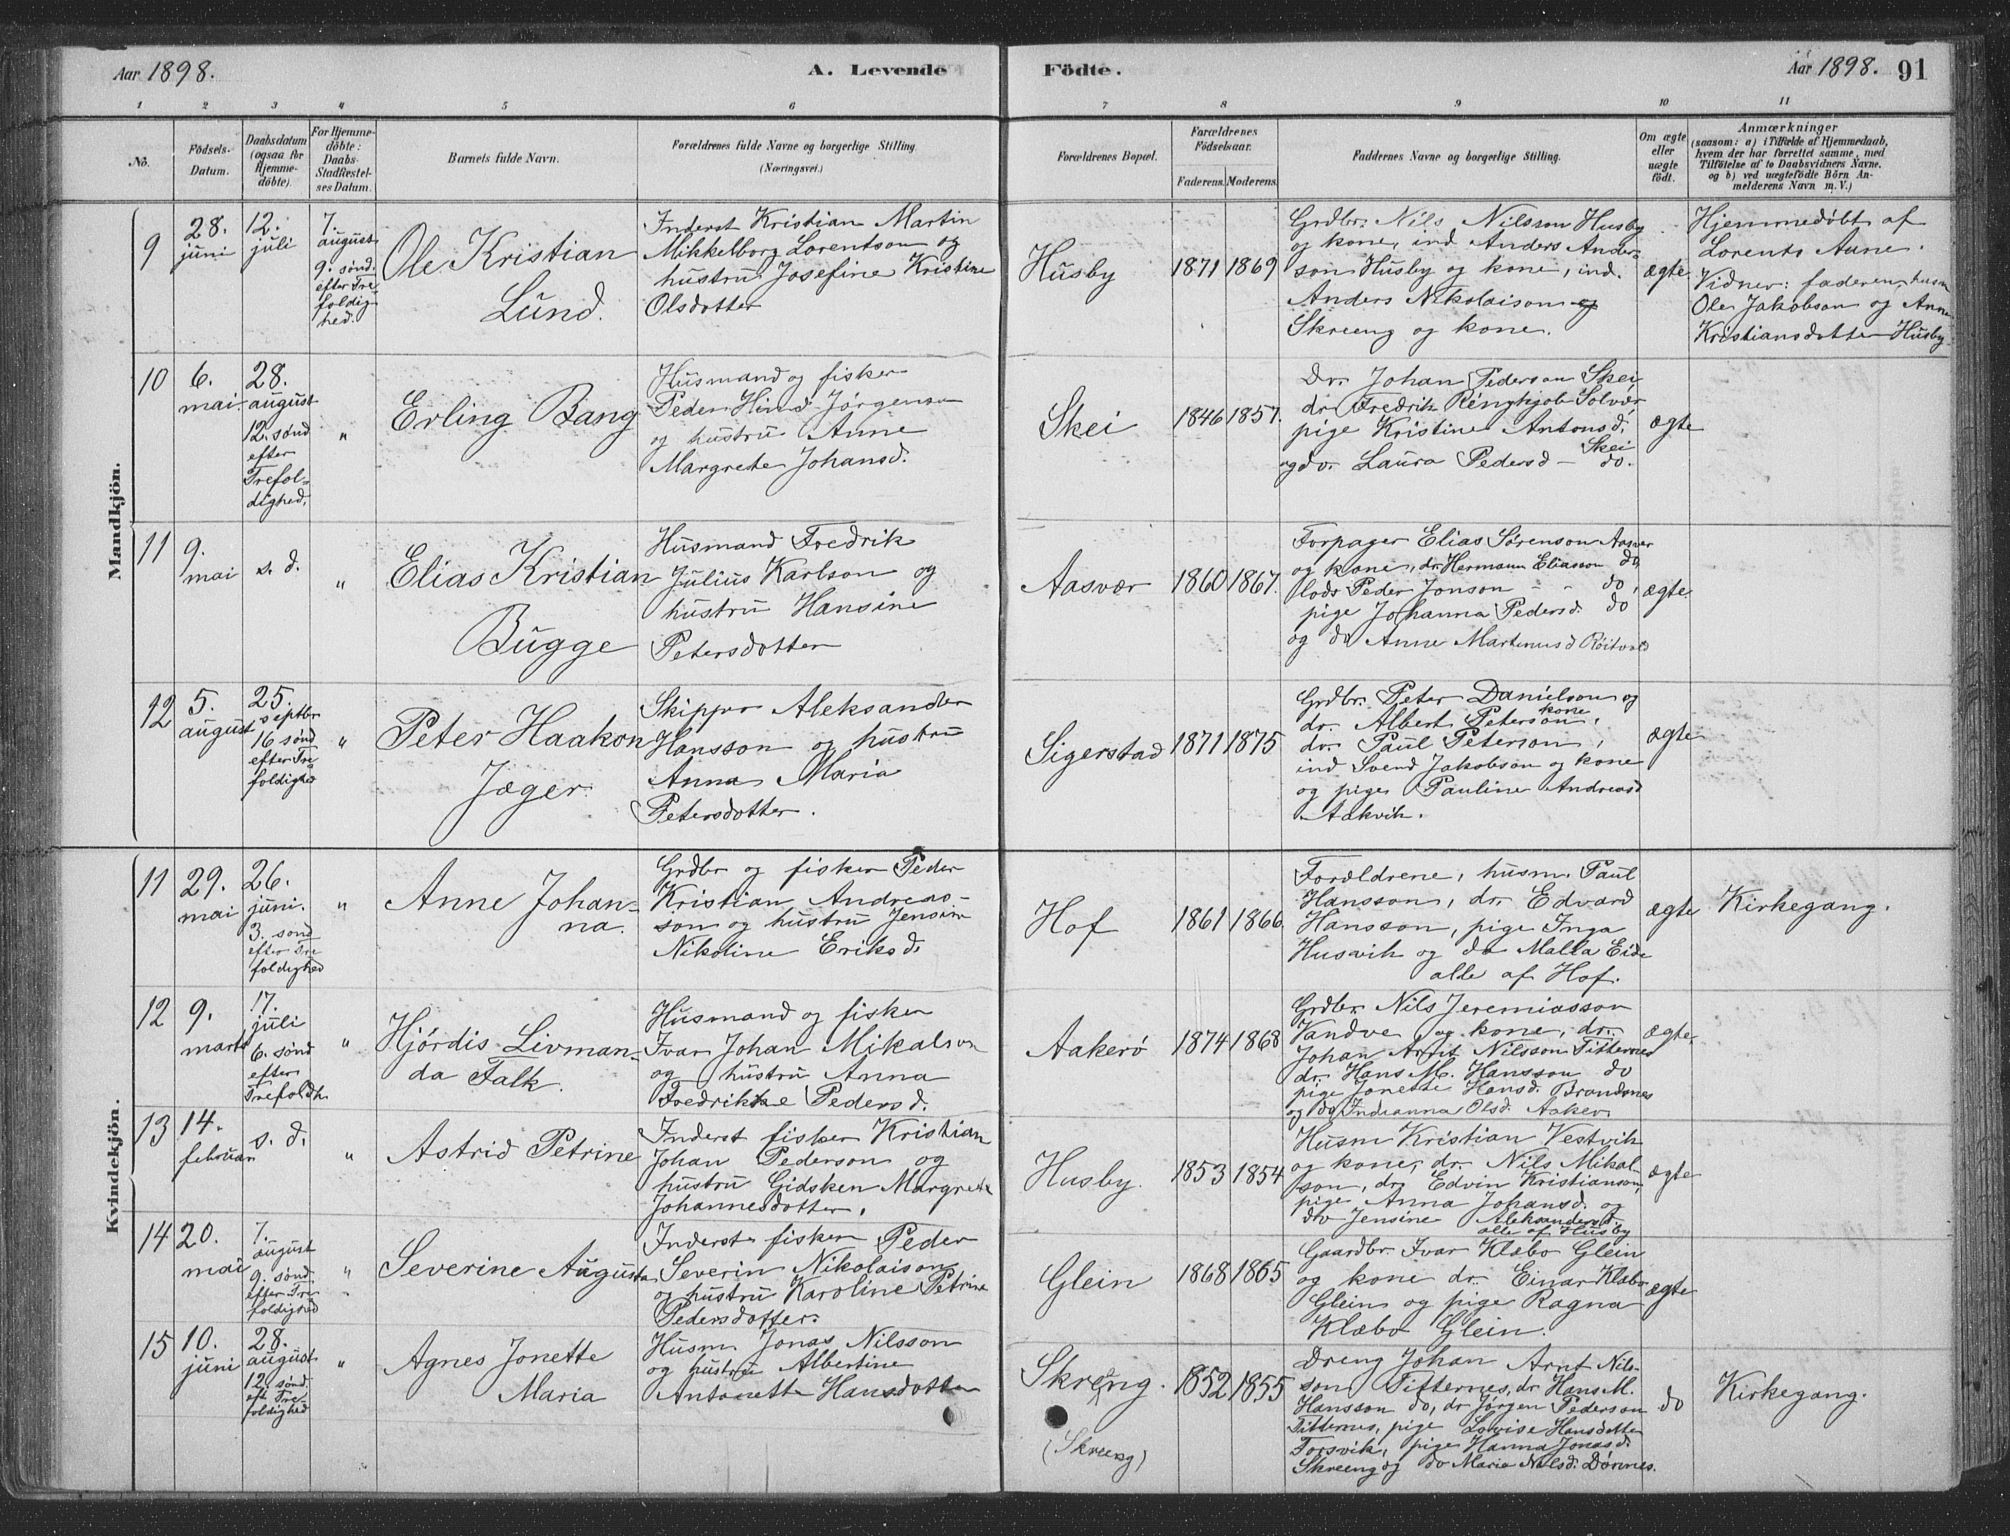 Aar 1898.
A. Levende
Födte.
Aar 1898. 91
1 2 3 4 5 6 7 8 9 10 11
No.
Födsels-
Datum.
Daabsdatum
(ogsaa for
Hjemme-
döbte).
For Hjemme-
döbte:
Daabs-
Stadfæstel-
ses Datum.
Barnets fulde Navn.
Forældrenes fulde Navne og borgerlige Stilling
(Næringsvei.)
Forældrenes Bopæl.
Forældrenes
Födselsaar.
Faderens. Moderens.
Faddernes Navne og borgerlige Stilling.
Om ægte
eller
uægte
födt.
Anmærkninger
(saasom: a) i Tilfælde af Hjemmedaab,
hvem der har forrettet samme, med
Tilföielse af to Daabsvidners Navne.
og b) ved uægtefödte Börn An-
melderens Navn m. V.)
Mandkjön.
9
28.
juni
12.
juli
7.
august
9. sønd.
efter Tre-
foldig-
hed.
Ole Kristian
Lund.
Inderst Kristian Martin
Mikkelborg Lorentson og
hustru Josefine Kristine
Olsdotter
Husby
1871 1869
Grdbr. Nils Nilsson Husby
og kone, ind Anders Ander-
son Husby og kone, ind.
Anders Nikolaison og
Skreeng og kone.
ægte
Hjemmedøbt af
Lorents Aune.
Vidner: faderen, husm
Ole Jakobson og Anne
Kristiansdotter Husby.
10
6.
mai
28.
august
12. sønd
efter
Trefol-
dighed.
"
Erling Bang
Husmand og fisker
Peder Hind Jørgenson
og hustru Anne
Margrete Johansd.
Skei
1846 1857.
Dr. Johan Pederson Skei,
dr Fredrik Ringkjob Solvær,
pige Kristine Antonsd. Skei
og do. Laura Pedersd - do.
ægte
11
9.
mai
s. d.
"
Elias Kristian
Bugge
Husmand Fredrik
Julius Karlson og
hustru Hansine
Petersdotter
Aasvær
1860 1867.
Forpagter Elias Sørenson Aasvær
og kone, dr. Hermann Eliasson do,
lods Peder Jonson - - do,
pige Johanna Pedersd. do
og do Anne Martinusd
ægte.
12
5.
august
25.
septbr
16 sønd
efter Tre-
foldighed
"
Peter Haakon
Jæger.
Skipper Aleksander
Hansson og hustru
Anna Maria
Petersdotter.
Sigerstad
1871 1875
Grdbr. Peter Danielson og
kone
dr. Albert Peterson,
dr. Paul Peterson,
ind Svend Jakobson og kone
og pige Pauline Andreasd
Aakvik.
ægte
Kvindekjön.
11
29.
mai
26.
juni.
3. sønd
efter Tre
foldighed
"
Anne Johan-
na.
Grdbr og fisker Peder
Kristian Andreas-
son og hustru Jensine
Nikoline Eriksd.
Hof
1861 1866
Forældrene, husm. Paul
Hansson, dr. Edvard
Hansson, pige Inga
Husvik og do Malla Eide
alle af Hof.
ægte
Kirkegang.
12
9.
marts
17.
juli
6. sønd
efter
Trefoldh.
"
Hjørdis Livman-
da Falk.
Husmand og fisker
Ivar Johan Mikalson
og hustru Anna
Fredrikke Pedersd.
Aakerø
1874 1868
Grdbr. Nils Jeremiasson
Vandve og kone, dr.
Johan Arnt Nilsson Titternes
dr. Hans M. Hansson do
pige Jonette Hansd. Brandsnes
og do Indianna Olsd. Aaker.
ægte,
13
14.
februar
s. d.
"
Astrid Petrine
Inderst fisker Kristian
Johan Pederson og
hustru Gidsken Margrete
Johannesdotter.
Husby.
1853 1854
Husm Kristian Vestvik
og kone, dr. Nils Mikal-
son, dr. Edvin Kristianson,
pige Anna Johansd. og
do Jensine Aleksandersd.
alle af Husby
ægte
14
20.
mai
7.
august
9. sønd
efter Tre
foldighed
"
Severine Augusta
Inderst fisker Peder
Severin Nikolaison
og hustru Karoline Petrine
Pedersdotter.
Glein
1868 1865
Gaardbr. Ivar Klæbo Glein
og kone dr. Einar Klæbo
Glein og pige Ragna
Klæbo Glein.
ægte
15
10.
juni
28.
august
12. sønd
eft. Tre-
foldighed
"
Agnes Jonette
Maria
Husm. Jonas Nilsson
og hustru Albertine
Antonette Hansdotter
Skreeng.
(Skreeng)
1852 1855
Dreng Johan Arnt Nils-
son Titternes, dr. Hans M.
Hansson do, dr Jørgen Pederson
Titternes, pige Lovise Hansdotter
Forsvik, pige Hanna Jonasd.
Skreeng og do Maria Nilsd. Dønnes.
do
Kirkegang.